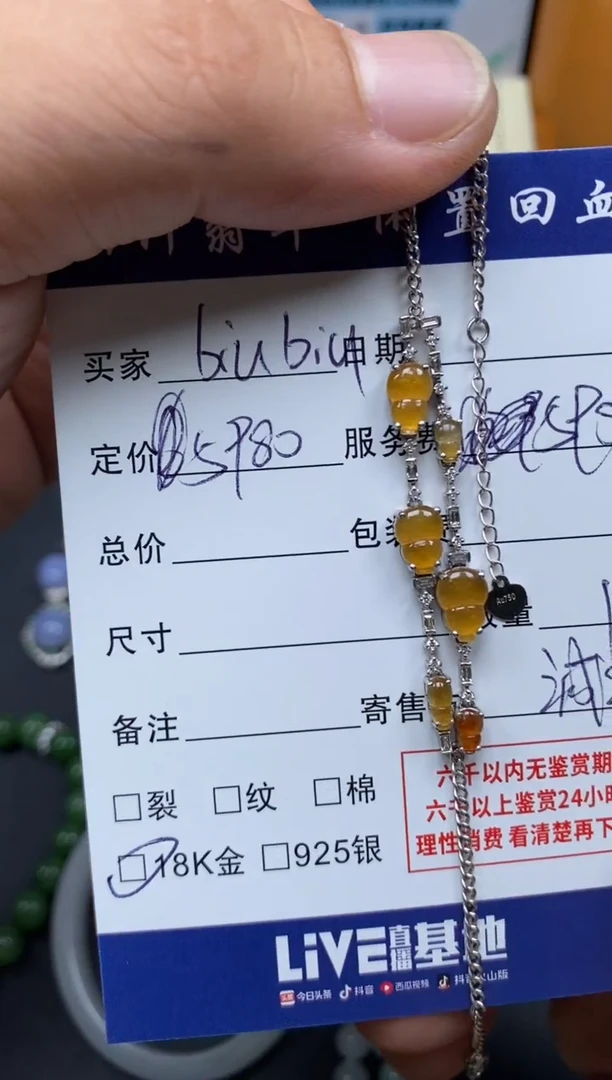 翡翠 闲置回血
买家 biubiu 日期
定价 5980 服务费
总价 包装费
尺寸 数量
备注 寄售
AU750
□裂 □纹 □棉
□18K金 □925银
六千以内无鉴赏期
六千以上鉴赏24小时
理性消费 看清楚再下
LiVE直播基地
头条 今日头条 抖音 西瓜视频 抖音火山版